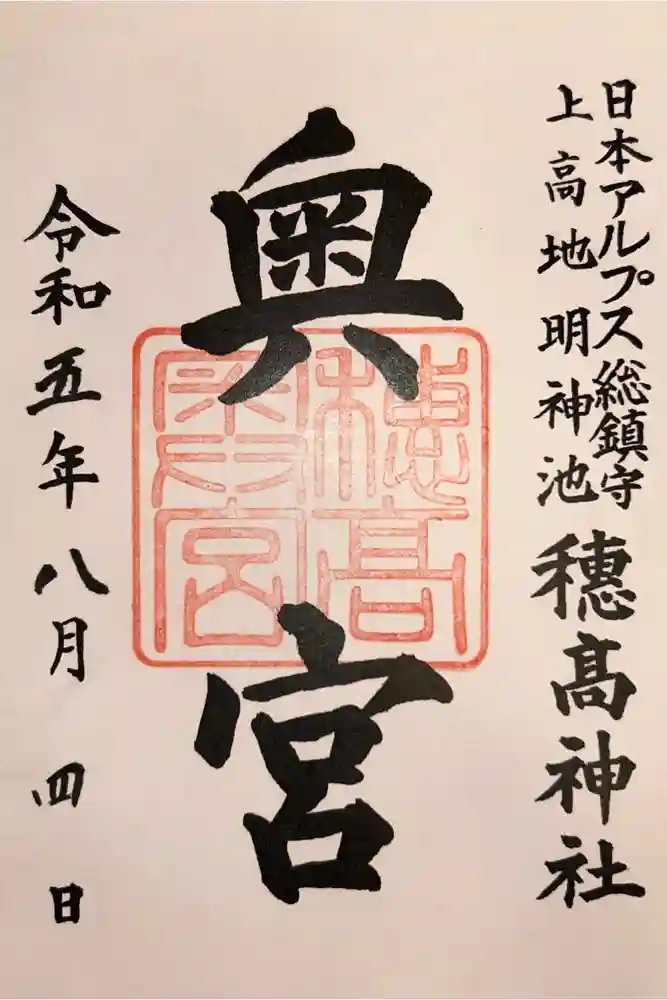 日本アルプス総鎮守
上高地明神池
穂髙神社
奥宮
穂高奥宮
令和五年八月四日